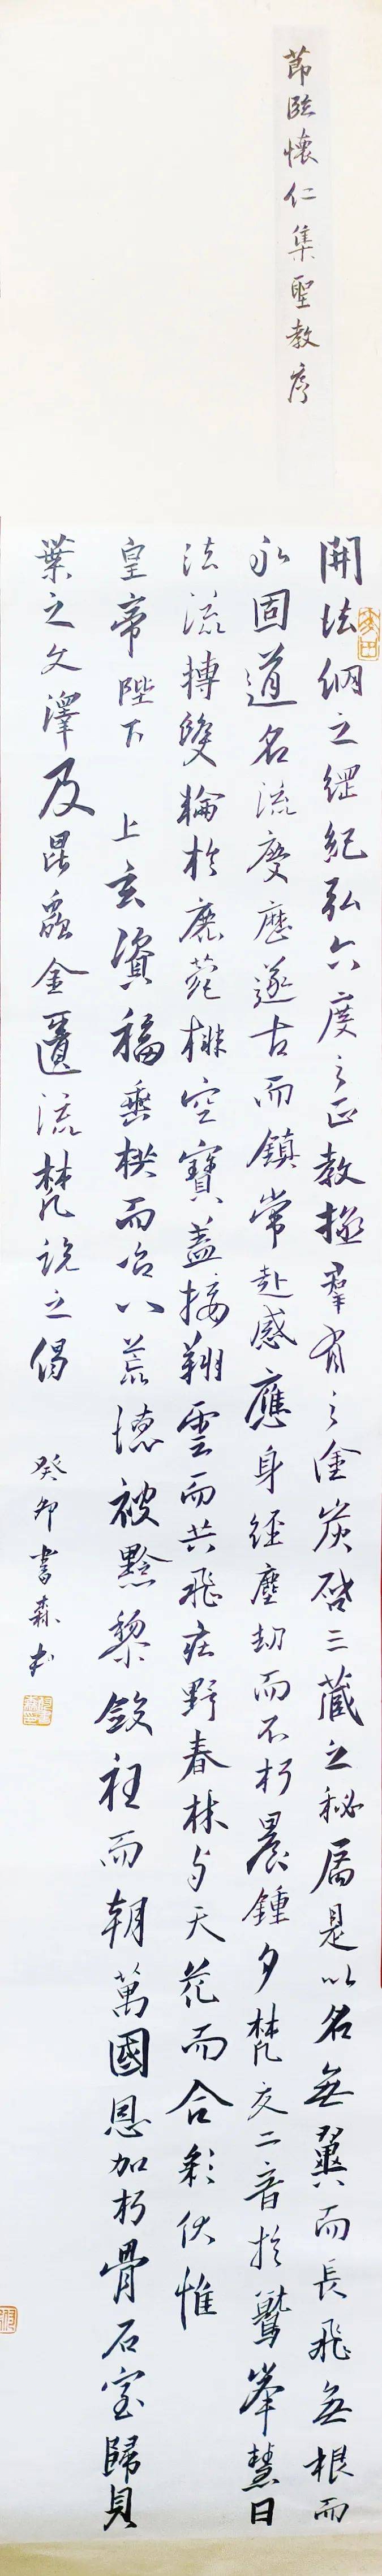 節臨懷仁集聖教序
開法網之綱紀弘六度之正教拯羣有之塗炭啓三藏之秘扃是以名無翼而長飛無根而
永固道名流慶歷遂古而鎮常赴感應身經塵劫而不朽晨鍾夕梵交二音於鷲峯慧日
法流轉雙輪於鹿菀排空寶蓋接翔雲而共飛莊野春林与天花而合彩伏惟
皇帝陛下 上玄資福垂拱而治八荒德被黔黎斂衽而朝萬國恩加朽骨石室歸貝
葉之文澤及昆蟲金匱流梵說之偈
癸卯書森